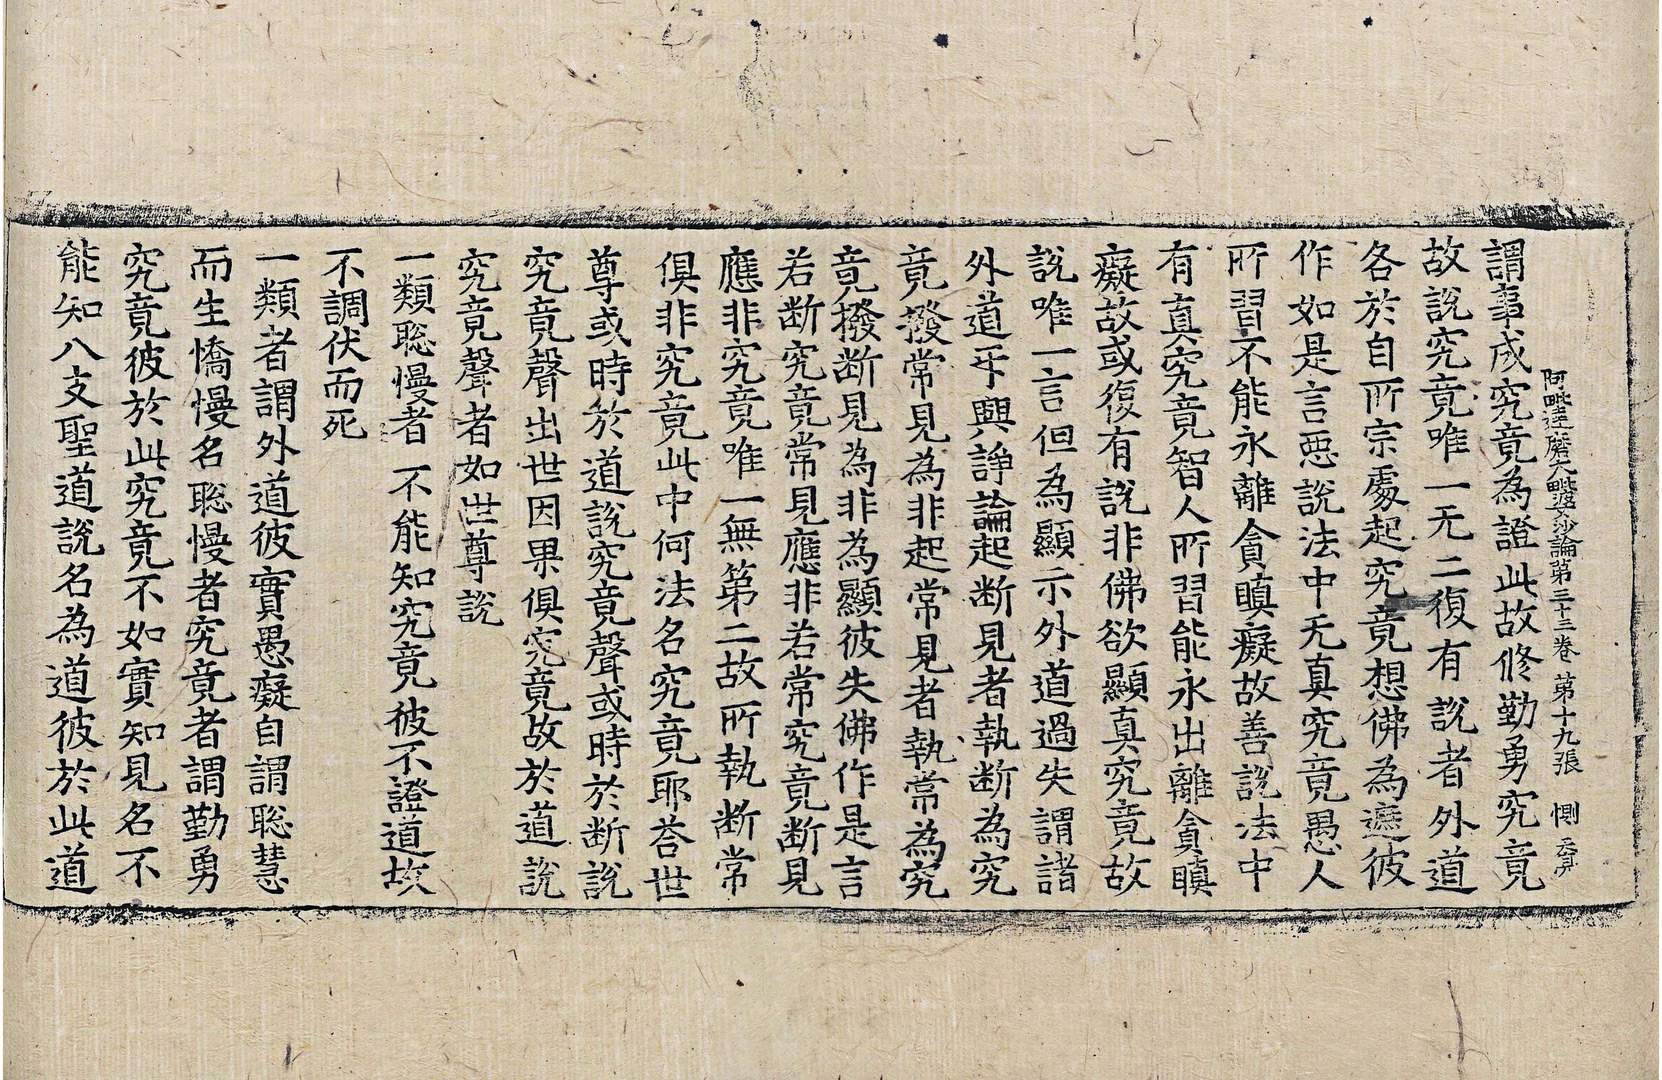 阿毗達磨大毗婆沙論第三十三卷 第十九張 惻
謂事成究竟為證此故修勤勇究竟
故說究竟唯一无二復有說者外道
各於自所宗處起究竟想佛為遮彼
作如是言惡說法中无真究竟愚人
所習不能永離貪瞋癡故善說法中
有真究竟智人所習能永出離貪瞋
癡故或復有說非佛欲顯真究竟故
說唯一言但為顯示外道過失謂諸
外道互興諍論起断見者執断為究
竟撥常見為非起常見者執常為究
竟撥断見為非為顯彼失佛作是言
若断究竟常見應非若常究竟断見
應非究竟唯一無第二故所執断常
俱非究竟此中何法名究竟耶荅世
尊或時於道說究竟聲或時於断說
究竟聲出世因果俱究竟故於道說
究竟聲者如世尊說
一類聡慢者 不能知究竟彼不證道故
不調伏而死
一類者謂外道彼實愚癡自謂聡慧
而生憍慢名聡慢者究竟者謂勤勇
究竟彼於此究竟不如實知見名不
能知八支聖道說名為道彼於此道